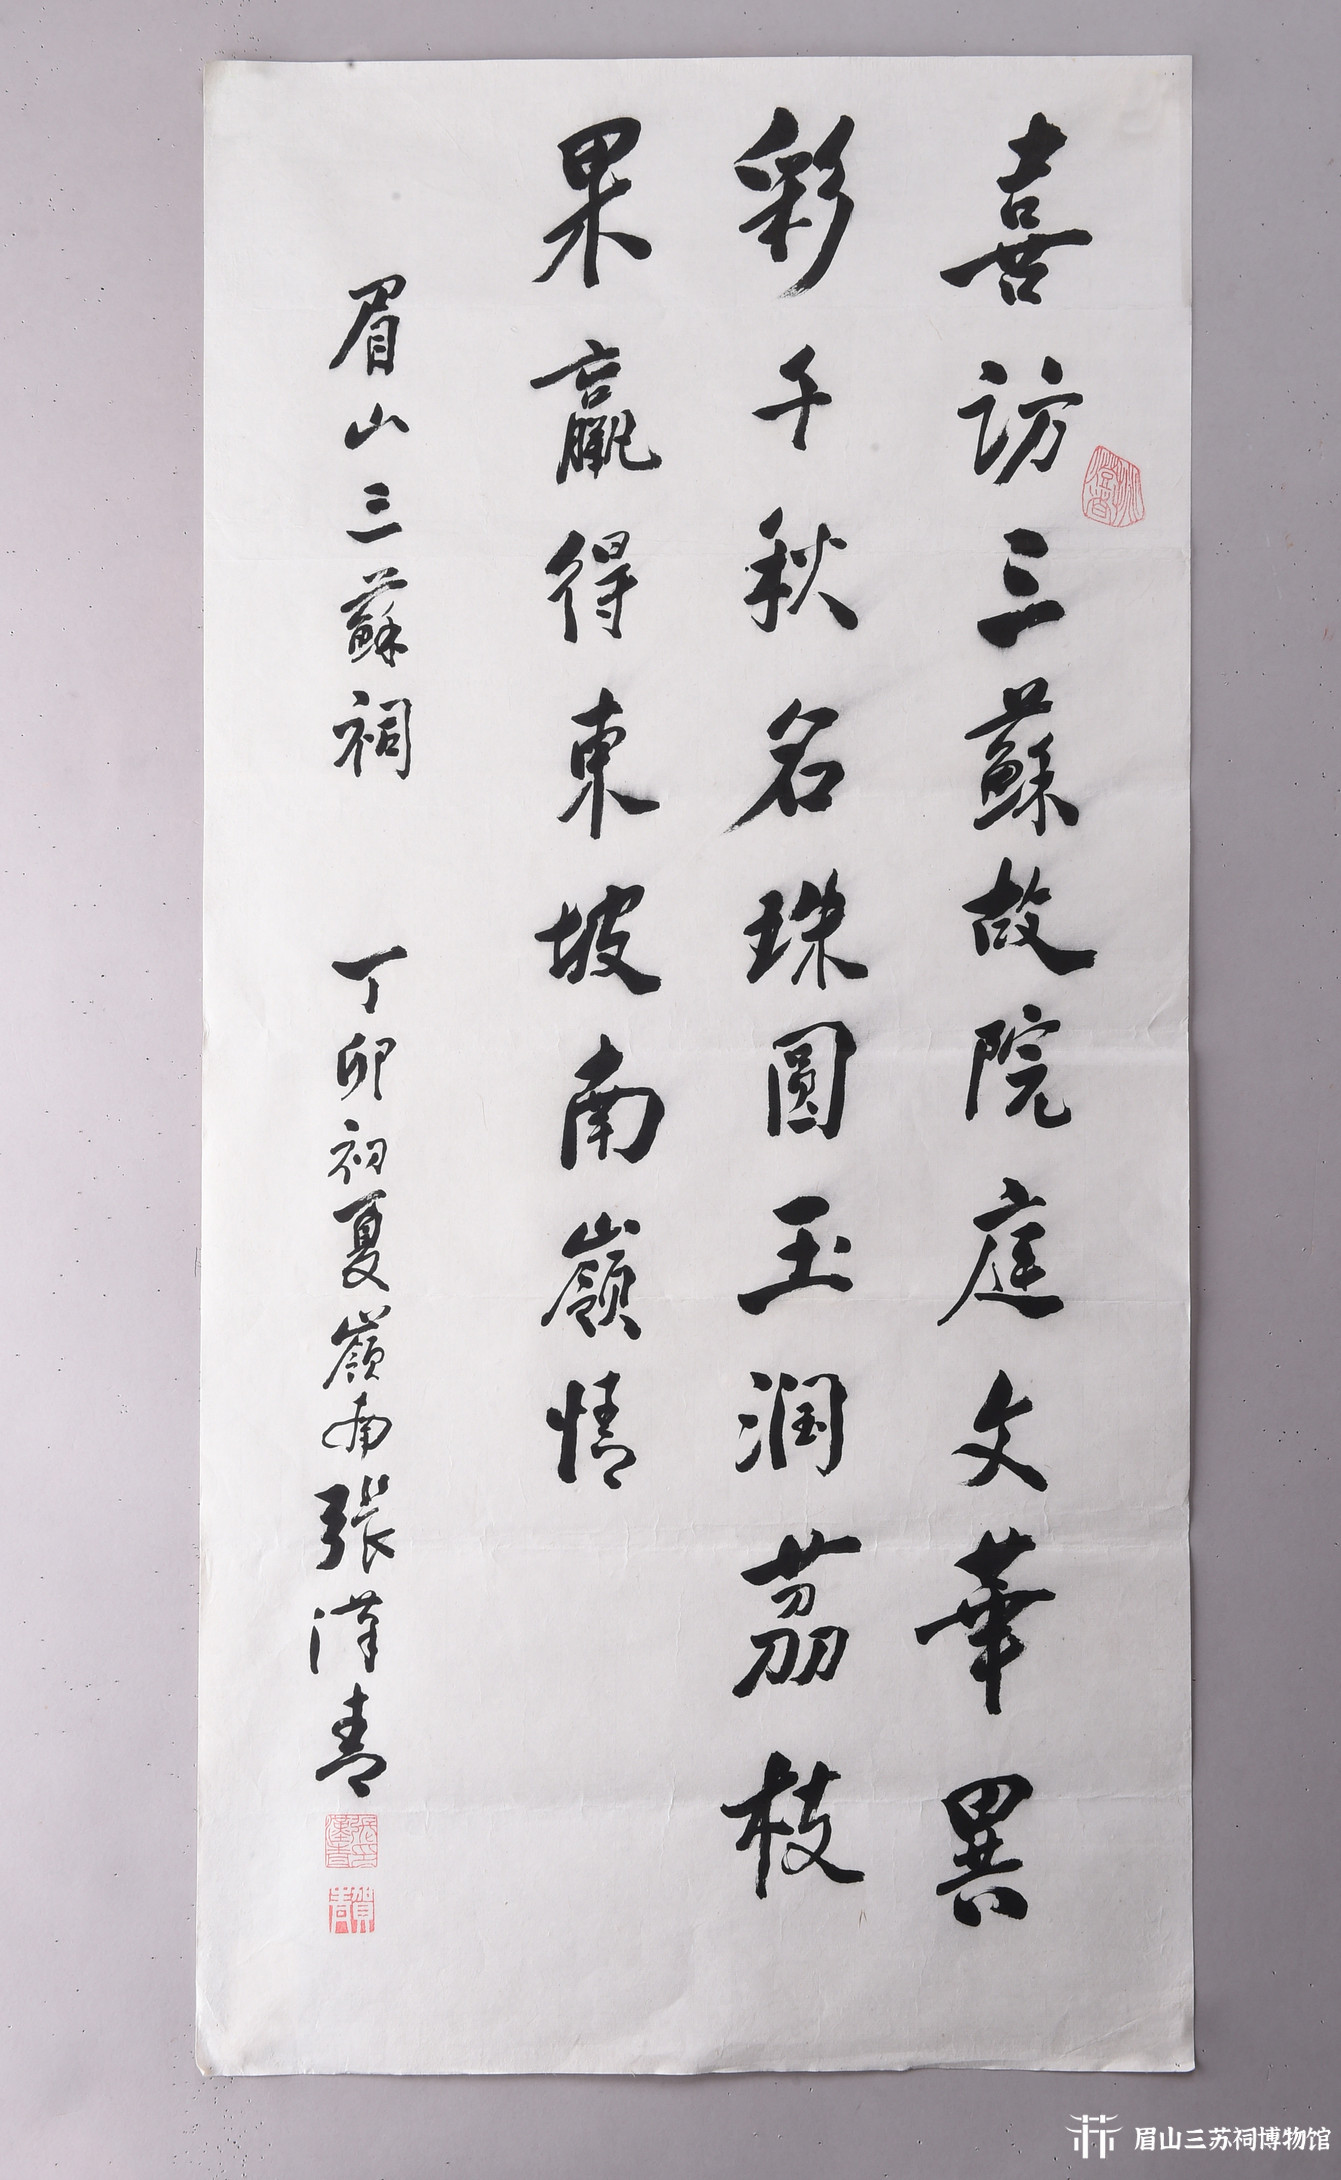 喜訪三蘇故院庭文華異
彩千秋名珠圓玉润荔枝
果贏得東坡南嶺情
眉山三蘇祠 丁卯初夏嶺南張漢青
眉山三苏祠博物馆